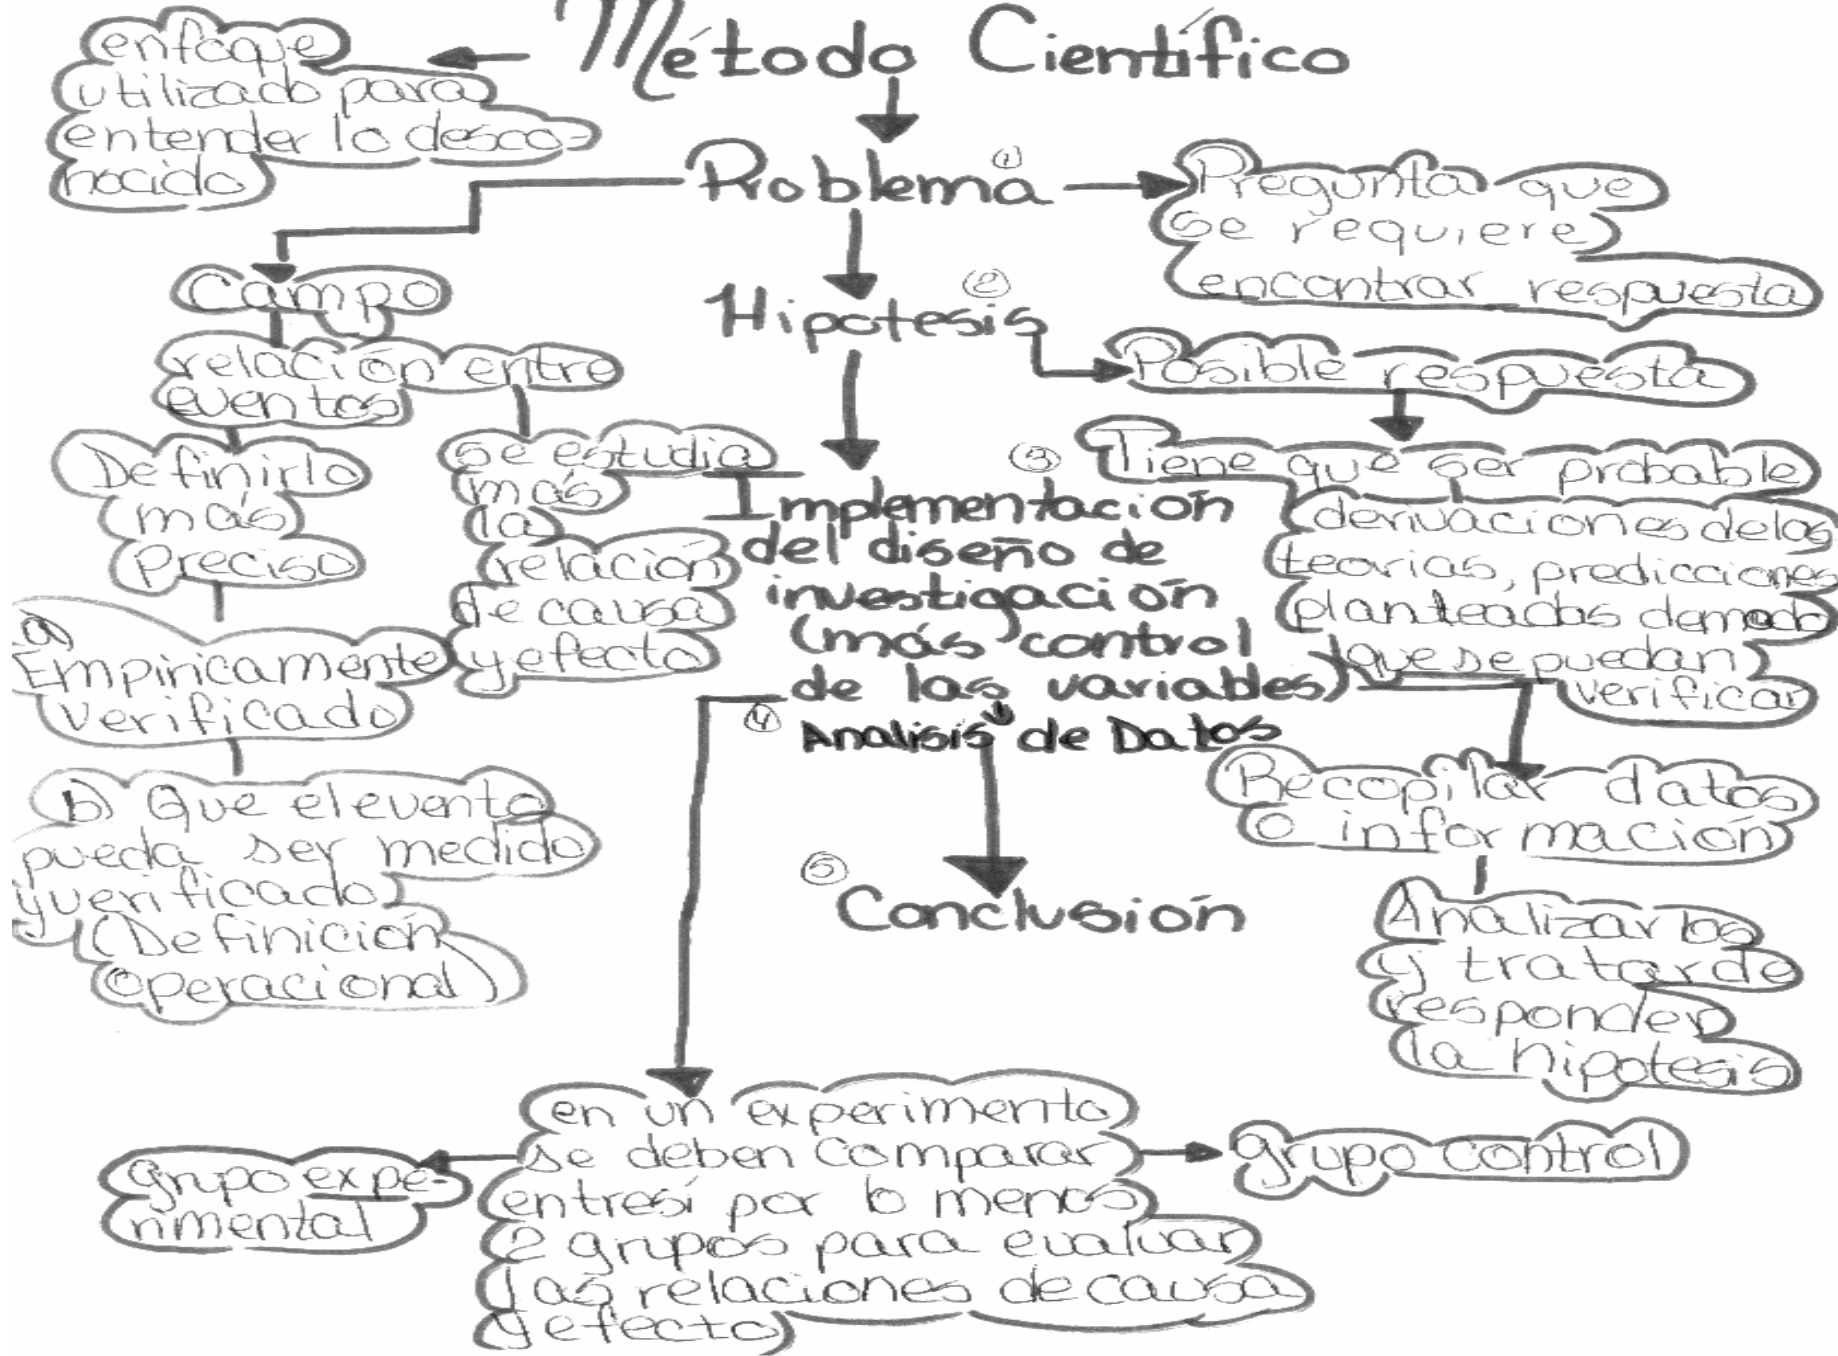 Método Científico
enfoque
utilizado para
entender lo desco-
nocido
Problema
①
Pregunta que
se requiere
encontrar respuesta
Campo
relación entre
eventos
Definirlo
más
preciso
a)
Empiricamente
verificado
b) Que el evento
pueda ser medido
y verificado
(Definición
operacional)
se estudia
más
la
relación
de causa
y efecto
Hipotesis
②
Posible respuesta
Tiene que ser probable
derivaciones de las
teorias, predicciones
planteadas de modo
que se puedan
verificar
③
Implementación
del diseño de
investigación
(más control
de las variables)
Recopilar datos
o información
Analizar los
y tratar de
responder
la hipotesis
④
Analisis de Datos
⑤
Conclusión
en un experimento
se deben comparar
entre sí por lo menos
2 grupos para evaluar
las relaciones de causa
y efecto
grupo expe-
rimental
grupo control